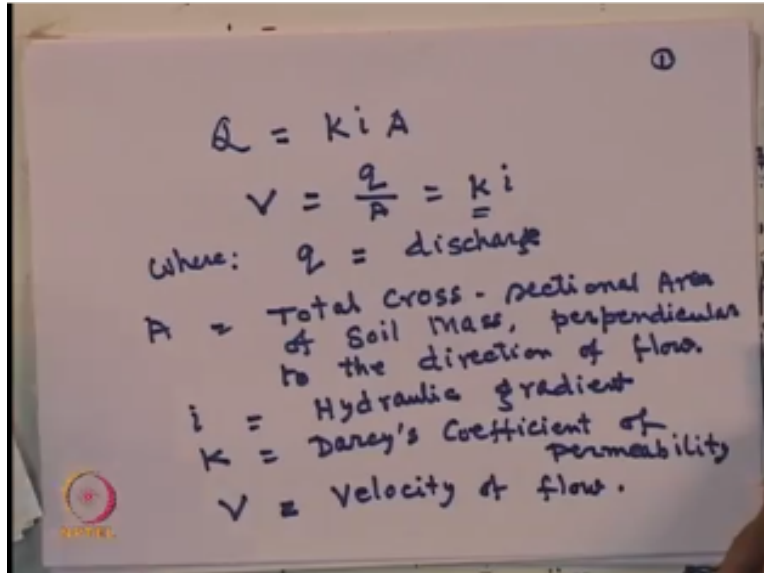 ①
Q = K i A
V = q/A = k i
where: q = discharge
A = Total Cross-sectional Area
of Soil Mass, perpendicular
to the direction of flow.
i = Hydraulic gradient
K = Darcy's Coefficient of
permeability
V = Velocity of flow.
NPTEL